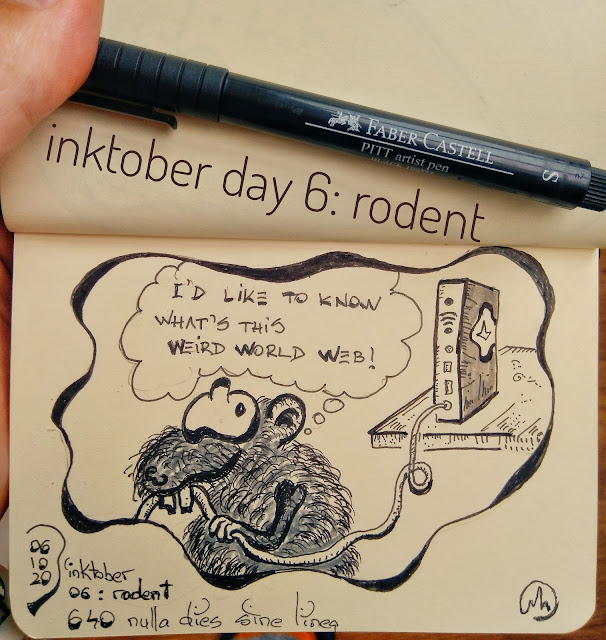 FABER-CASTELL
PITT artist pen
S
inktober day 6: rodent
I'D LIKE TO KNOW
WHAT'S THIS
WEIRD WORLD WEB!
06
10
20
inktober
06: rodent
640 nulla dies sine linea